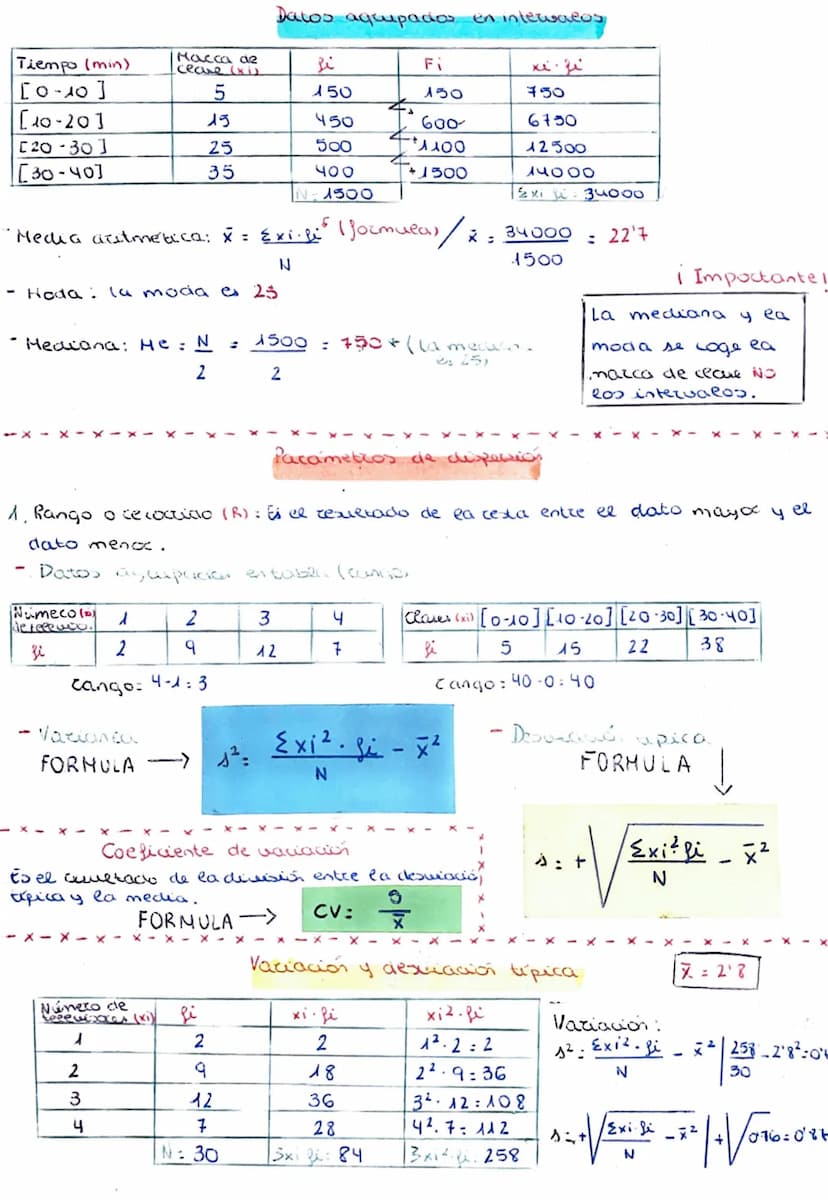 Datos agrupados en intervalos
Tiempo (min) | Marca de clase (xi) | fi | Fi | xi·fi
[0-10] | 5 | 150 | 150 | 750
[10-20] | 15 | 450 | 600 | 6750
[20-30] | 25 | 500 | 1100 | 12500
[30-40] | 35 | 400 | 1500 | 14000
N: 1500 | Σxi·fi: 34000
- Media aritmética: x̄ = Σxi·fi / N (formula) / x̄ = 34000 / 1500 = 22'7
- Moda: la moda es 25
¡Importante!
La mediana y la
moda se coge la
marca de clase NO
los intervalos.
- Mediana: Me = N / 2 = 1500 / 2 = 750 * (la
es 25)
Parámetros de dispersión
1. Rango o recorrido (R): Es el resultado de la resta entre el dato mayor y el
dato menor.
- Datos
Número | 1 | 2 | 3 | 4
fi | 2 | 9 | 12 | 7
rango= 4-1:3
Clases (xi) | [0-10] | [10-20] | [20-30] | [30-40]
fi | 5 | 15 | 22 | 38
rango= 40-0:40
- Varianza
FORMULA → s²: Σxi²·fi / N - x̄²
- Desviación típica
FORMULA
s: +√(Σxi²·fi / N - x̄²)
Coeficiente de variación
Es el resultado de la división entre la desviación
típica y la media.
FORMULA → CV: s / x̄
Variación y desviación típica
x̄ = 2'8
Número de televisores (xi) | fi | xi·fi | xi²·fi
1 | 2 | 2 | 1²·2:2
2 | 9 | 18 | 2²·9:36
3 | 12 | 36 | 3²·12:108
4 | 7 | 28 | 4²·7:112
N: 30 | Σxi·fi: 84 | Σxi²·fi: 258
Variación:
s²: Σxi²·fi / N - x̄² | 258 / 30 - 2'8²:
s: +√(Σxi·fi / N - x̄²) | +√0'76=